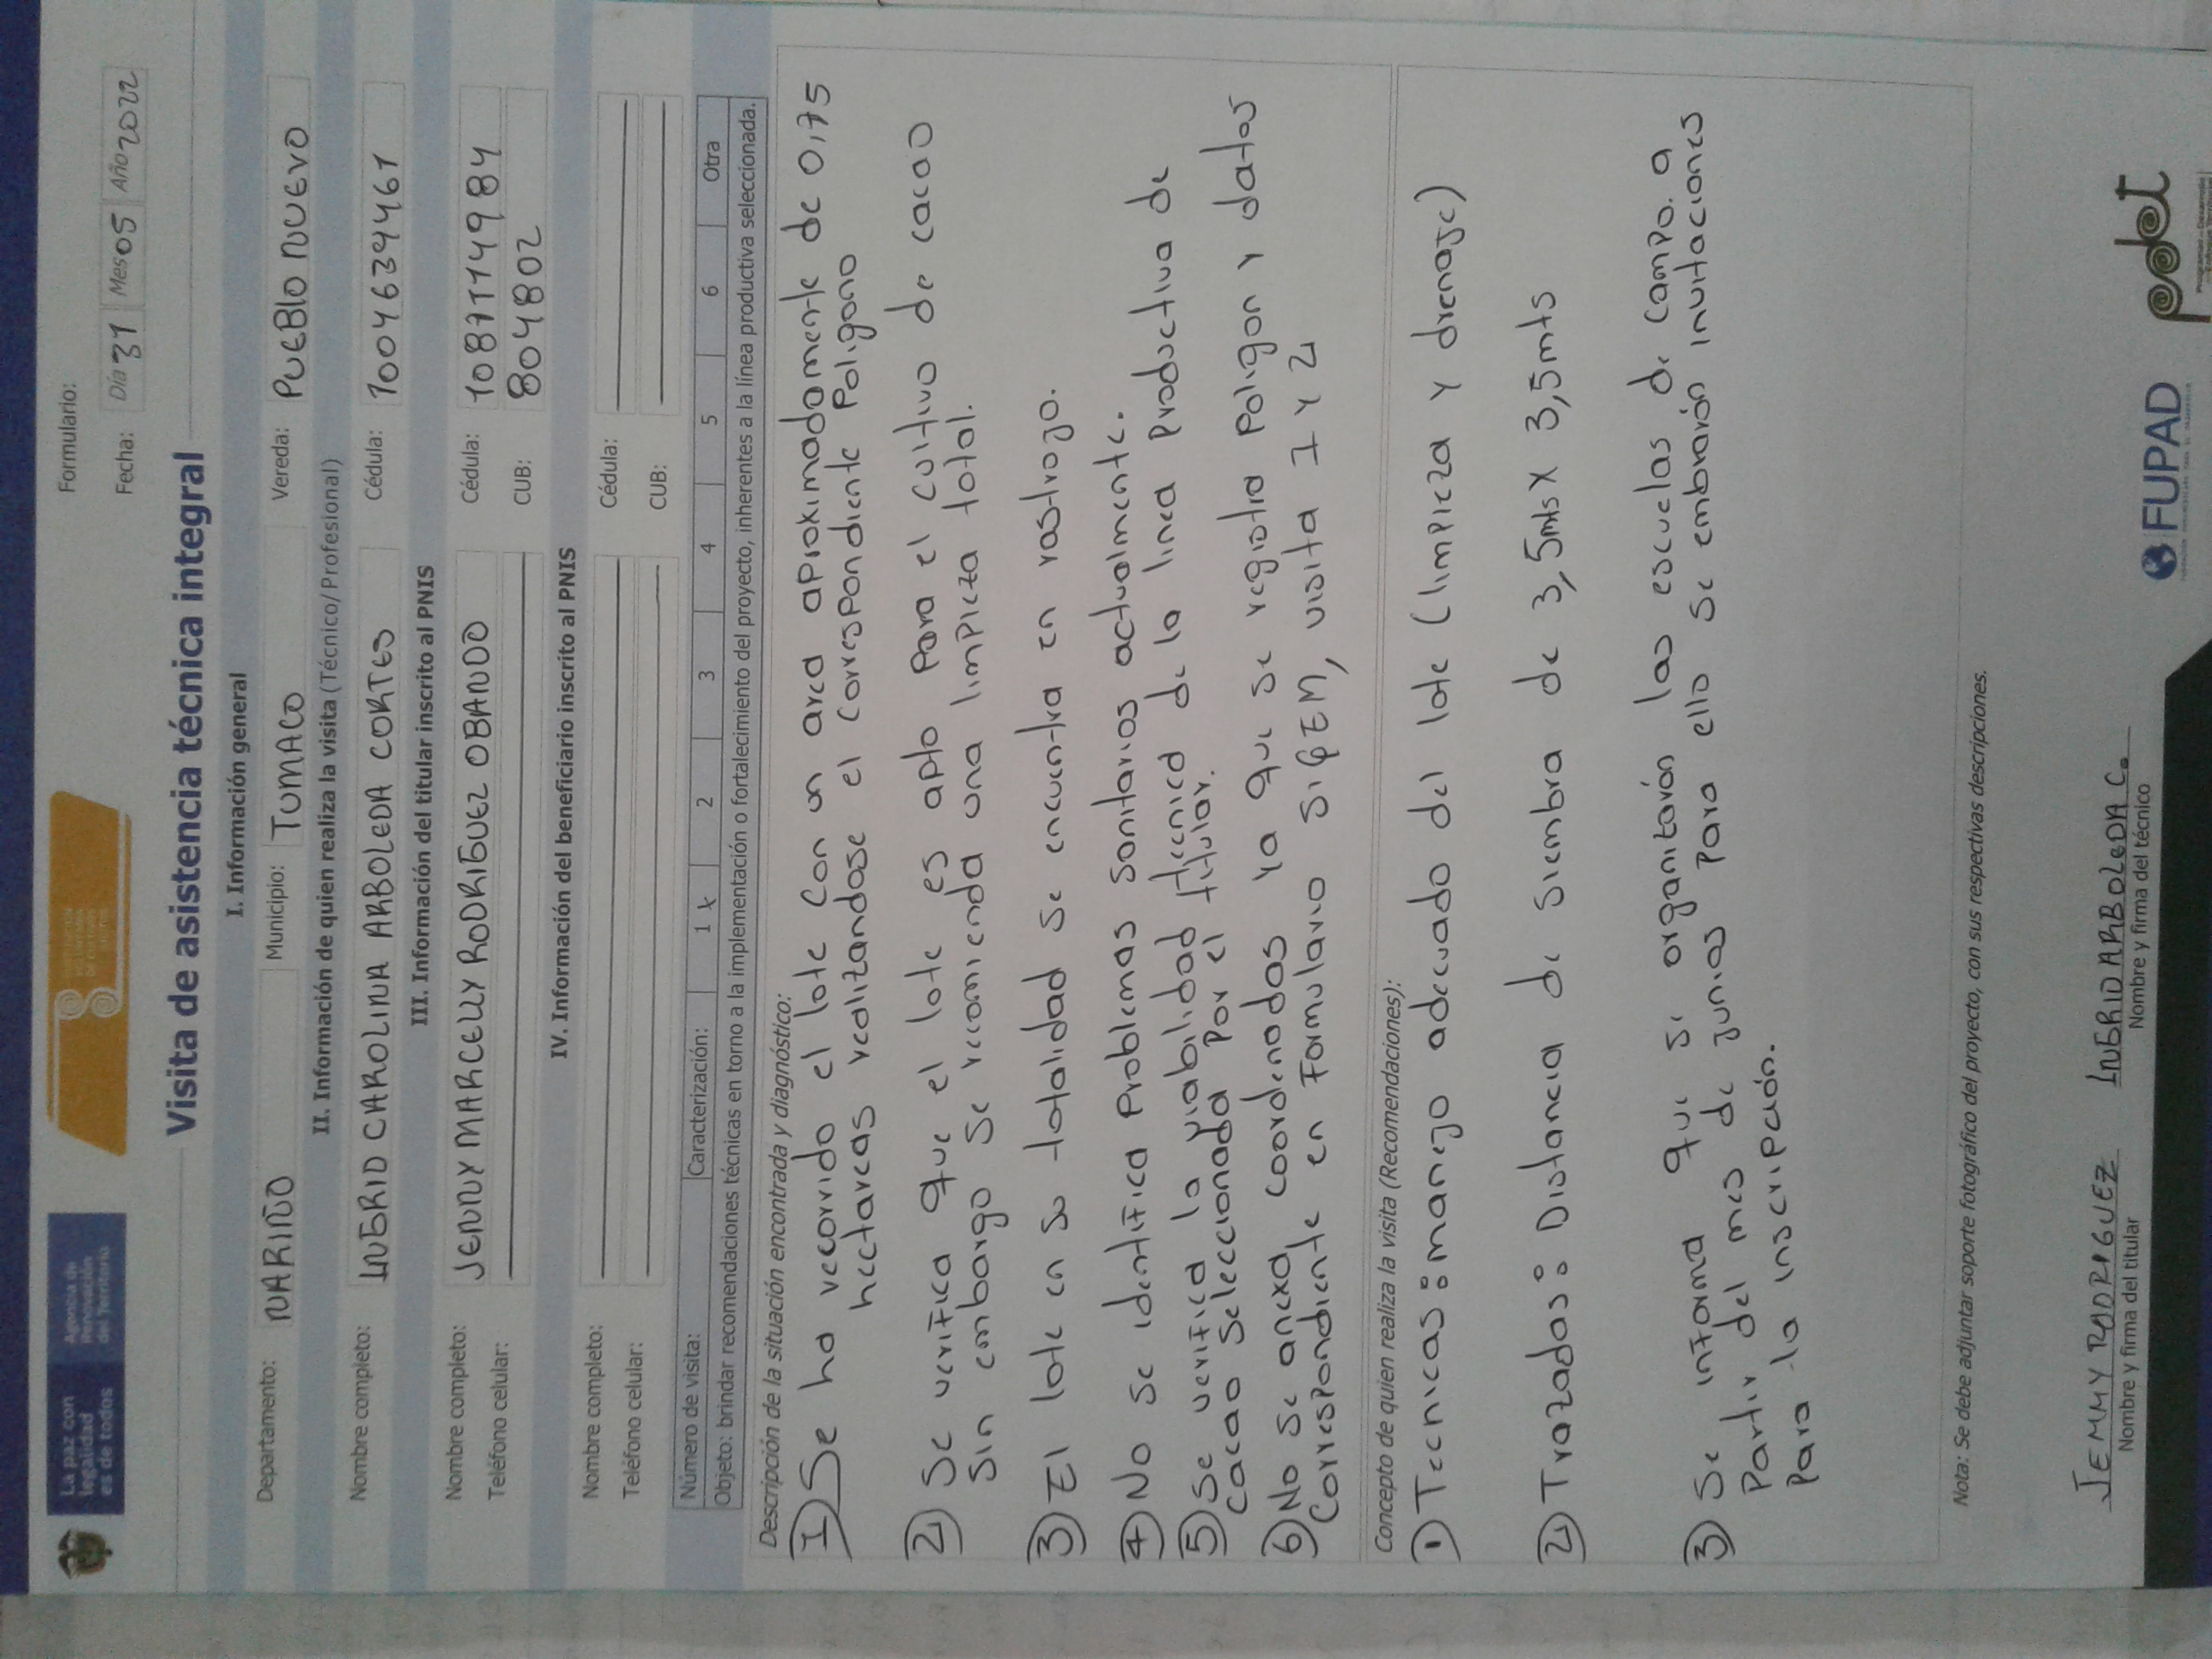 La paz con
legalidad
es de todos
Agencia de
Renovación
del Territorio
Formulario:
Fecha: Día 31 Mes 05 Año 2022
Visita de asistencia técnica integral
I. Información general
Departamento: NARIÑO Municipio: TUMACO Vereda: PUEBLO NUEVO
II. Información de quien realiza la visita (Técnico/Profesional)
Nombre completo: INGRID CAROLINA ARBOLEDA CORTES Cédula: 1004639461
III. Información del titular inscrito al PNIS
Nombre completo: JENNY MARCELLY RODRIGUEZ OBANDO Cédula: 1087114984
Teléfono celular: CUB: 804802
IV. Información del beneficiario inscrito al PNIS
Nombre completo: Cédula:
Teléfono celular: CUB:
Número de visita: Caracterización: 1 x 2 3 4 5 6 Otra
Objeto: brindar recomendaciones técnicas en torno a la implementación o fortalecimiento del proyecto, inherentes a la línea productiva seleccionada.
Descripción de la situación encontrada y diagnóstico:
1) Se ha recorrido el lote con un area aproximadamente de 0,75
hectareas realizandose el correspondiente Poligono
2) Se verifica que el lote es apto para el cultivo de cacao
sin embargo se recomienda una limpieza total.
3) El lote en su totalidad se encuentra en rastrojo.
4) No se identifica problemas sanitarios actualmente.
5) Se verifica la viabilidad tecnica de la linea productiva de
cacao seleccionada por el titular.
6) No se anexa coordenadas ya que se registra poligon y datos
correspondiente en Formulario SIGEM, visita 1 y 2
Concepto de quien realiza la visita (Recomendaciones):
1) Tecnicas: manejo adecuado del lote (limpieza y drenaje)
2) Trazados: Distancia de siembra de 3,5mts X 3,5mts
3) Se informa que se organitarán las escuelas de campo. a
Partir del mes de junios para ello se embrarán invitaciones
para la inscripción.
Nota: Se debe adjuntar soporte fotográfico del proyecto, con sus respectivas descripciones.
JEMMY RODRIGUEZ INGRID ARBOLEDA C.
Nombre y firma del titular Nombre y firma del técnico
FUPAD
pdet